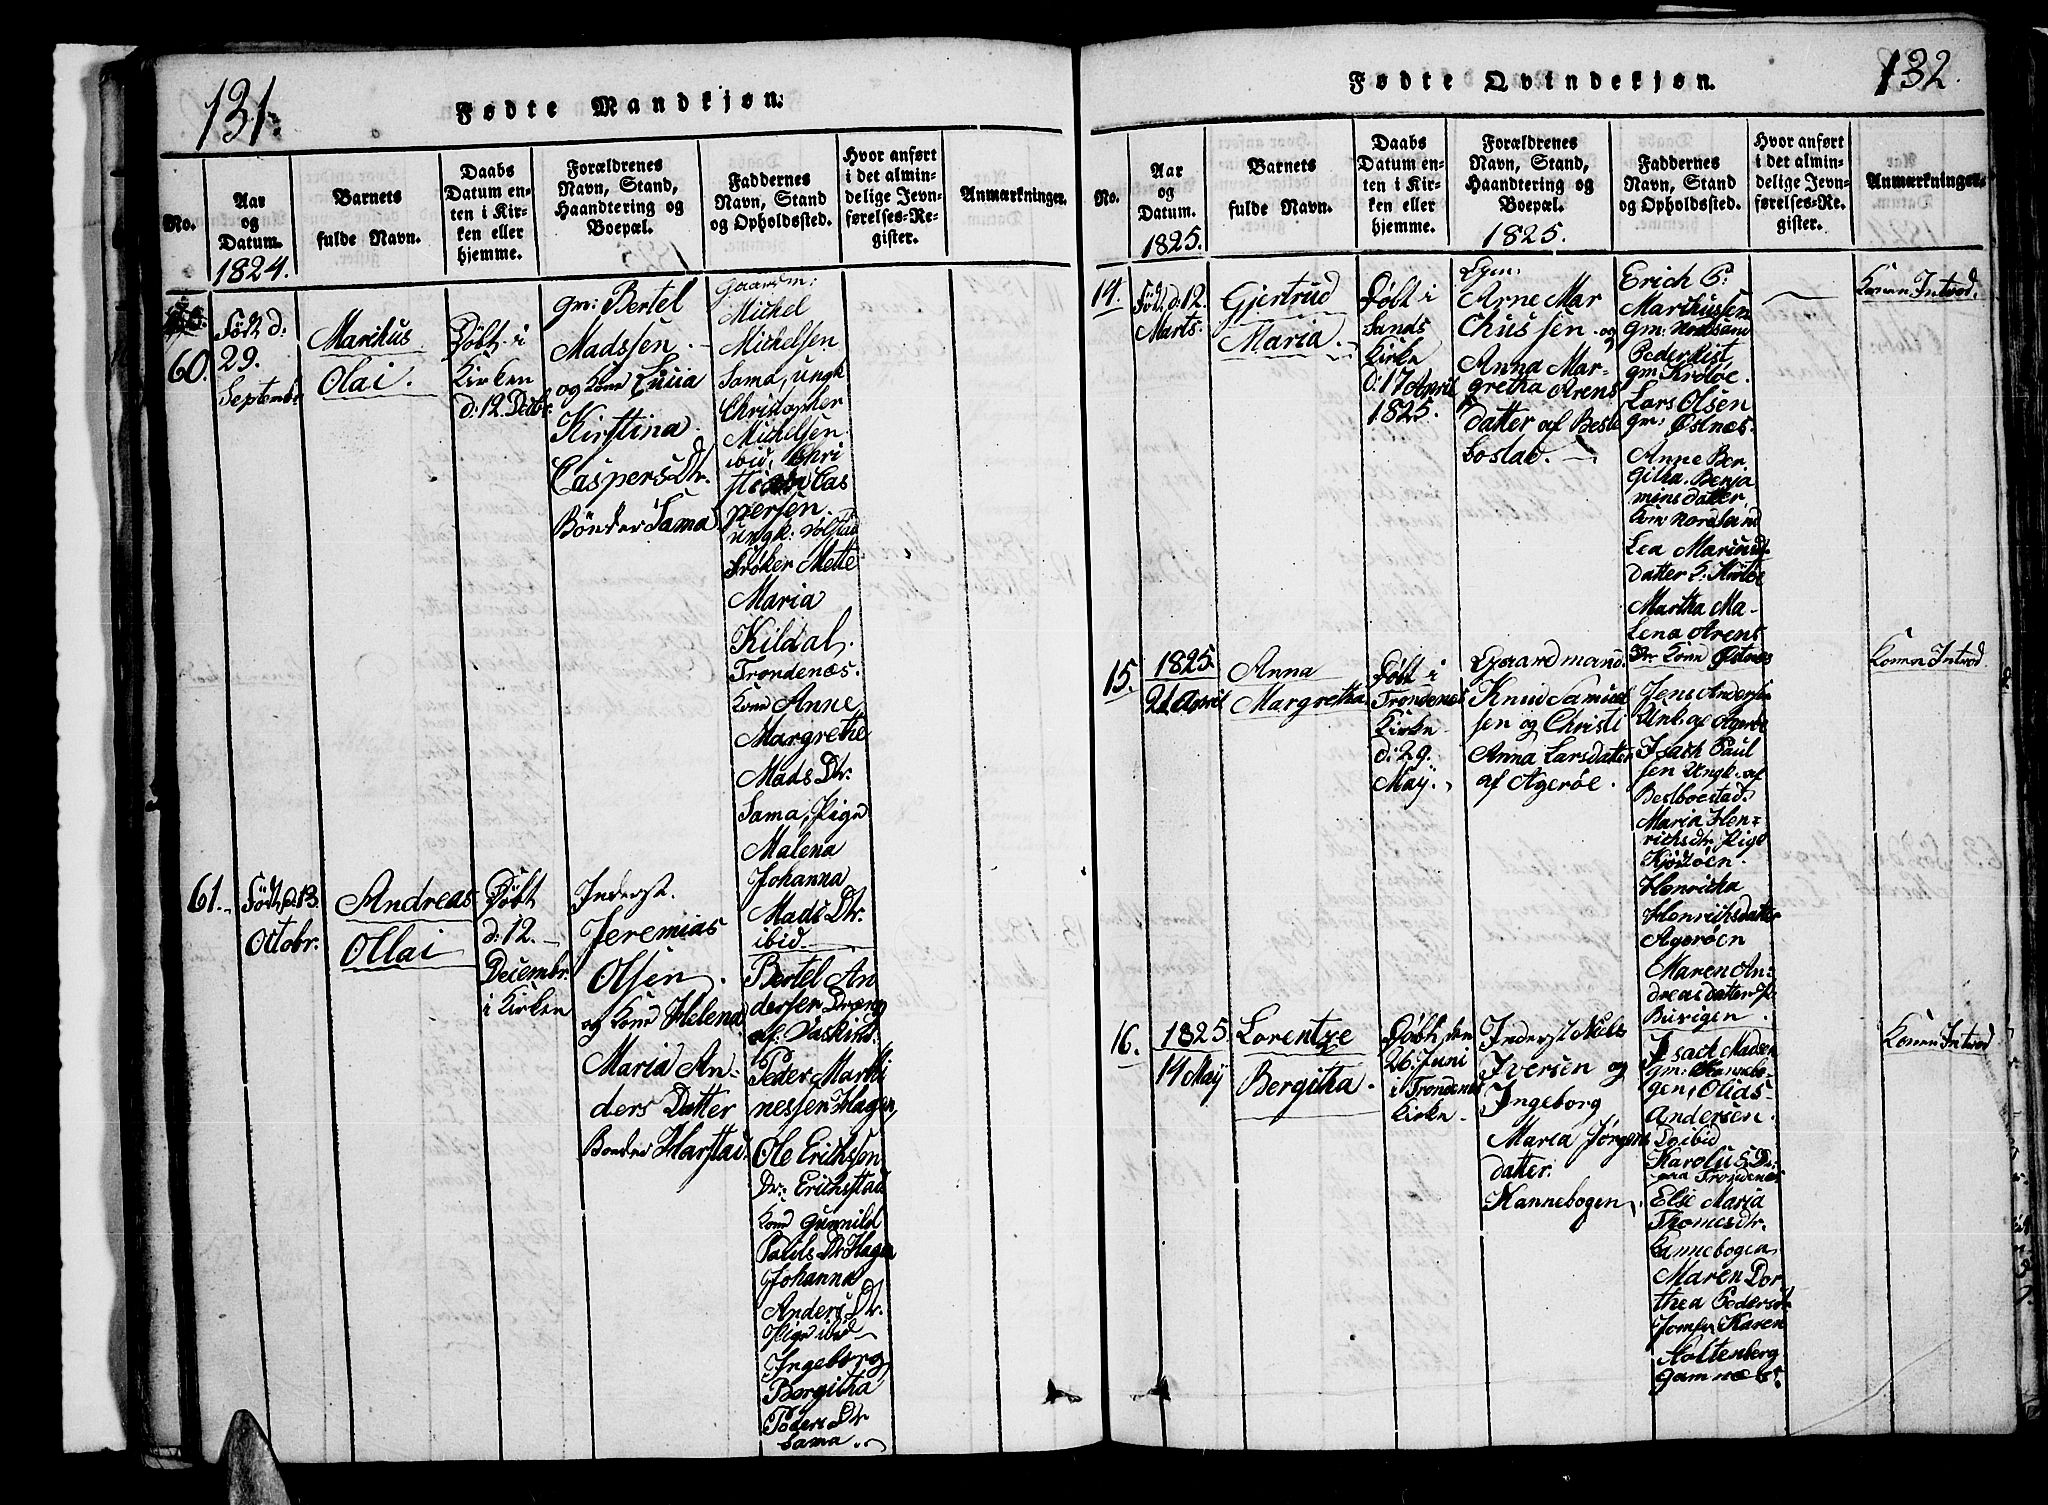 131.
Fødte Mandkjøn.
No.
Aar
og
Datum.
1824.
Barnets
fulde Navn.
Daabs
Datum en-
ten i Kir-
ken eller
hjemme.
Forældrenes
Navn, Stand,
Haandtering og
Boepæl.
Faddernes
Navn, Stand
og Opholdssted.
Hvor anført
i det almin-
delige Jevn-
førelses-Re-
gister.
Anmærkninger.
60.
Født d:
29.
Septembr
Marikus
Olai.
Døbt i
Kirken
d: 12 Decbr.
gm: Bertel
Madssen
og Kone Lucia
Kirstina
Caspers Dr.
Bönder Sama
Gaarsm:
Michel
Michelsen
Sama, ungk
Christopher
Michelsen
ibid, Chri
Cas
persen.
ungk:
Frøker Mette
Maria
Kildal.
Trondenæs.
Kone Anne
Margrethe
Mads Dr.
Sama, Pige
Malena
Johanna
Mads Dr.
ibid
61.
Født d 13
Octobr.
Andreas
Ollai
Døbt
d: 12.
Decembr.
i Kirken
Inderst.
Jeremias
Olsen
og Kone Helena
Maria An-
ders Datter
Bønder Harstad.
Bertel An
dersen Dræng
af:
Peder Marki
nessen Hagen,
Ole Erichsen
Dr: Erichstad
Kone Gunnild
Pauls Dr Hagen
Johanna
Anders Dr.
Pige ibid
Ingeborg
Bergitha
Peders Dr
Sama.
132.
Fødte Qvindekjøn.
No.
Aar
og
Datum.
1825.
Barnets
fulde Navn.
Daabs
Datum en-
ten i Kir-
ken eller
hjemme.
Forældrenes
Navn, Stand,
Haandtering og
Boepæl.
1825.
Faddernes
Navn, Stand
og Opholdssted.
Hvor anført
i det almin-
delige Jevn-
førelses-Re-
gister.
Anmærkninger.
14.
Født d: 12.
Marts.
Gjertrud
Maria.
Døbt i
Sands
Kirke
d: 17 April
1825.
Arne Mar
chussen og
Anna Mar-
gretha Arens
datter af Besle
bostad.
Erich P:
Markussen
gm: Nordsand
Peder
gm Krøtøe.
Lars Olsen
gm: Østnæs.
Anne Ber
githa Benja
mins datter
Kone Nordsand
Lea Marius
datter P: Krøtøe
Martha Ma-
lena Arens
Dr Kone Østnæs
Konen Introd.
15.
1825.
21 April
Anna
Margretha
Døbt i
Trondenæs
Kirke
d: 29.
May.
Gaardmand.
Knud Samuel
sen og Christi
Anna Larsdatter
af Agerøe.
Jens Andersen
Unk af Agerøe
Isach Paul
sen Ungk. af
Beslboestad.
Maria Hen-
richsdr. Pige
Kjøtöen.
Henricka
Henrichsdatter
Agerøen
Maren An-
dreas datter P:
Burigen.
Konen Introd
16.
1825
14 May
Lorentze
Bergitha.
Døbt den
26. Juni
i Trondenæs
Kirke.
Inderst Niels
Iversen og
Ingeborg
Maria Jørgens
datter.
Kannebogen.
Isach Madsen
gm: Kannebo-
gen, Olias
Andersen.
D ibid
Karolus D:
Trondenæs
Else Maria
Thomesdr.
Kannebogen
Maren Dor
thea Pedersdr.
Jomfr. Karen
Holtenberg
Gamnæs.
Konen Introd